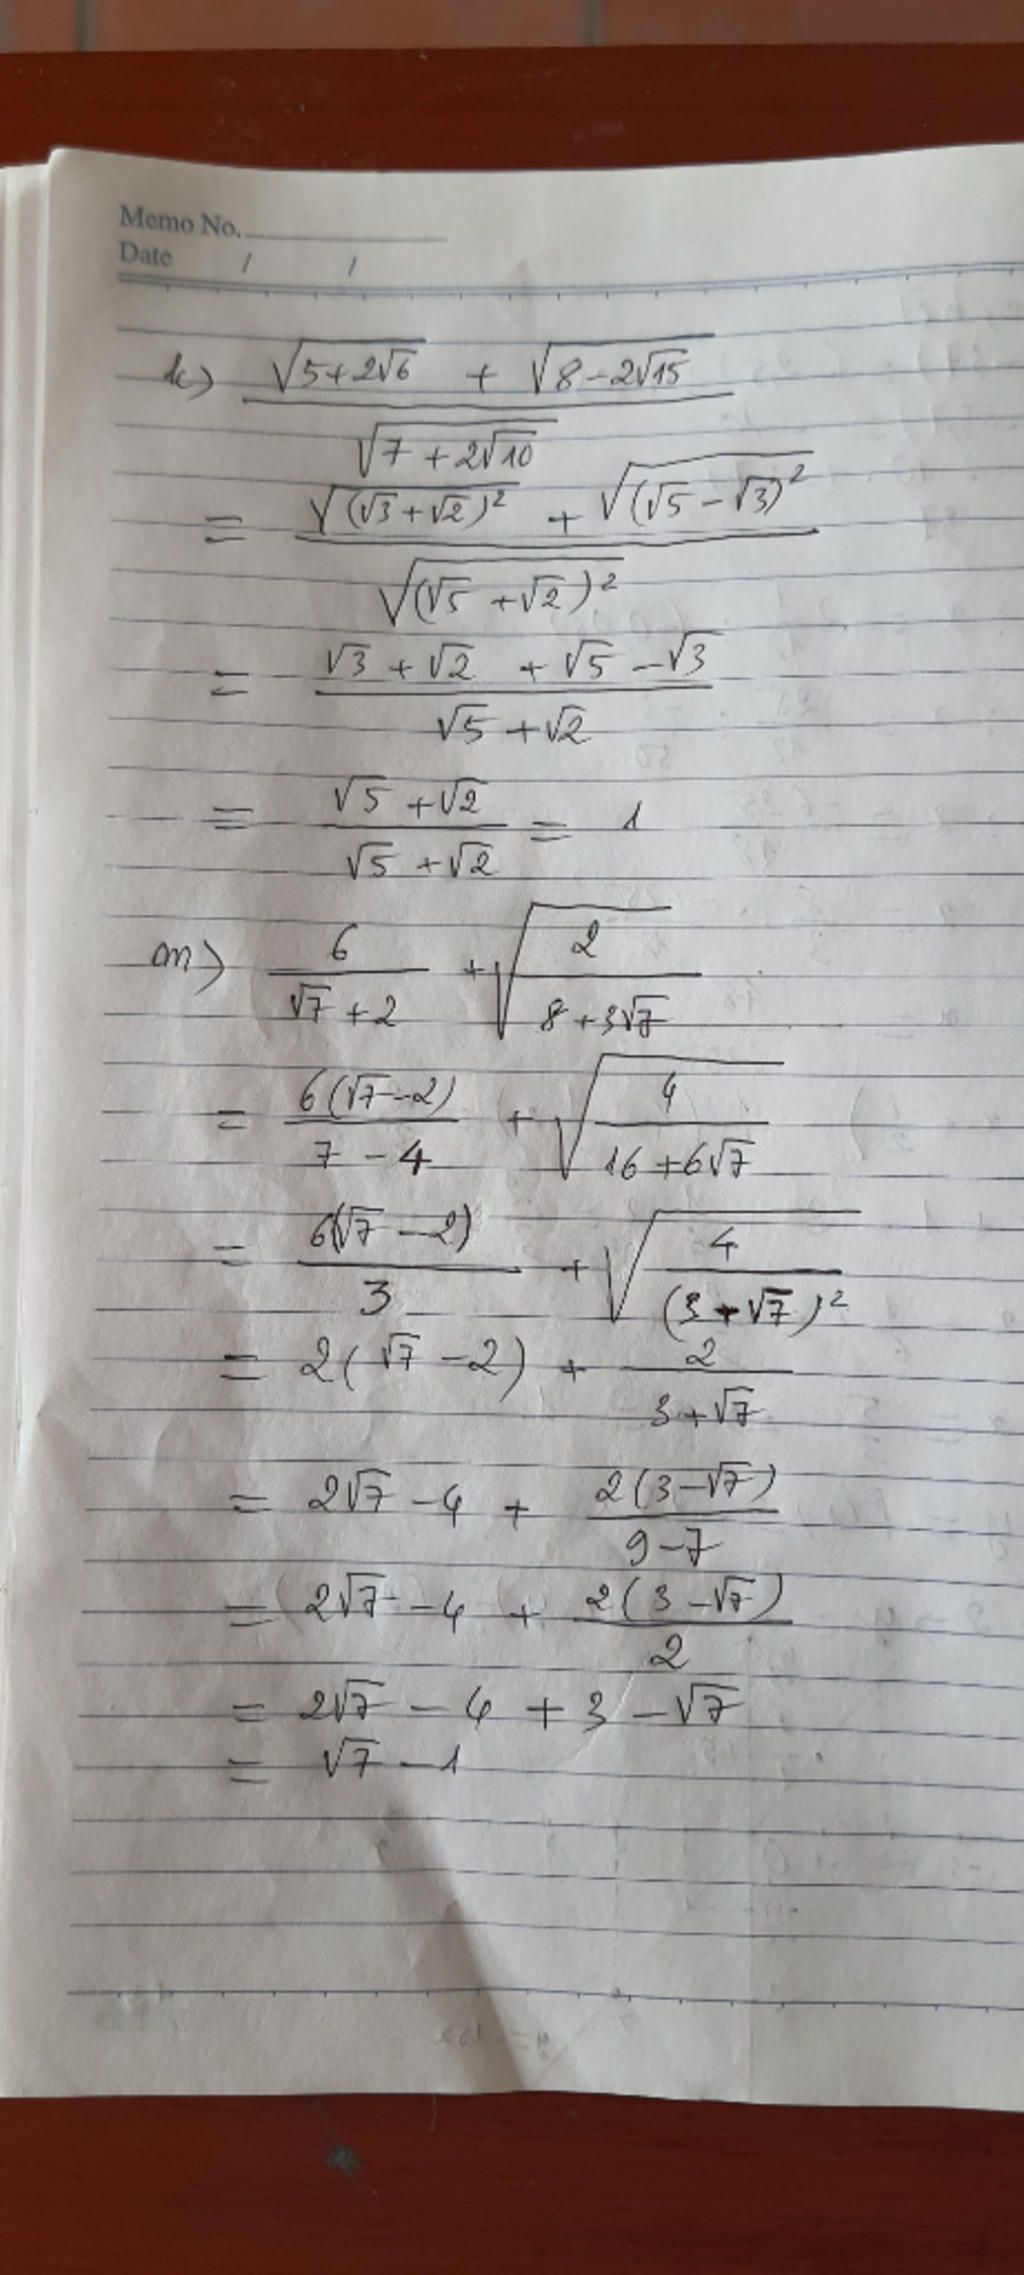 Memo No.
Date / /
k) \frac{\sqrt{5+2\sqrt{6}} + \sqrt{8-2\sqrt{15}}}{\sqrt{7+2\sqrt{10}}}
= \frac{\sqrt{(\sqrt{3}+\sqrt{2})^2} + \sqrt{(\sqrt{5}-\sqrt{3})^2}}{\sqrt{(\sqrt{5}+\sqrt{2})^2}}
= \frac{\sqrt{3}+\sqrt{2}+\sqrt{5}-\sqrt{3}}{\sqrt{5}+\sqrt{2}}
= \frac{\sqrt{5}+\sqrt{2}}{\sqrt{5}+\sqrt{2}} = 1
m) \frac{6}{\sqrt{7}+2} + \sqrt{\frac{2}{8+3\sqrt{7}}}
= \frac{6(\sqrt{7}-2)}{7-4} + \sqrt{\frac{4}{16+6\sqrt{7}}}
= \frac{6(\sqrt{7}-2)}{3} + \sqrt{\frac{4}{(3+\sqrt{7})^2}}
= 2(\sqrt{7}-2) + \frac{2}{3+\sqrt{7}}
= 2\sqrt{7}-4 + \frac{2(3-\sqrt{7})}{9-7}
= 2\sqrt{7}-4 + \frac{2(3-\sqrt{7})}{2}
= 2\sqrt{7}-4+3-\sqrt{7}
= \sqrt{7}-1